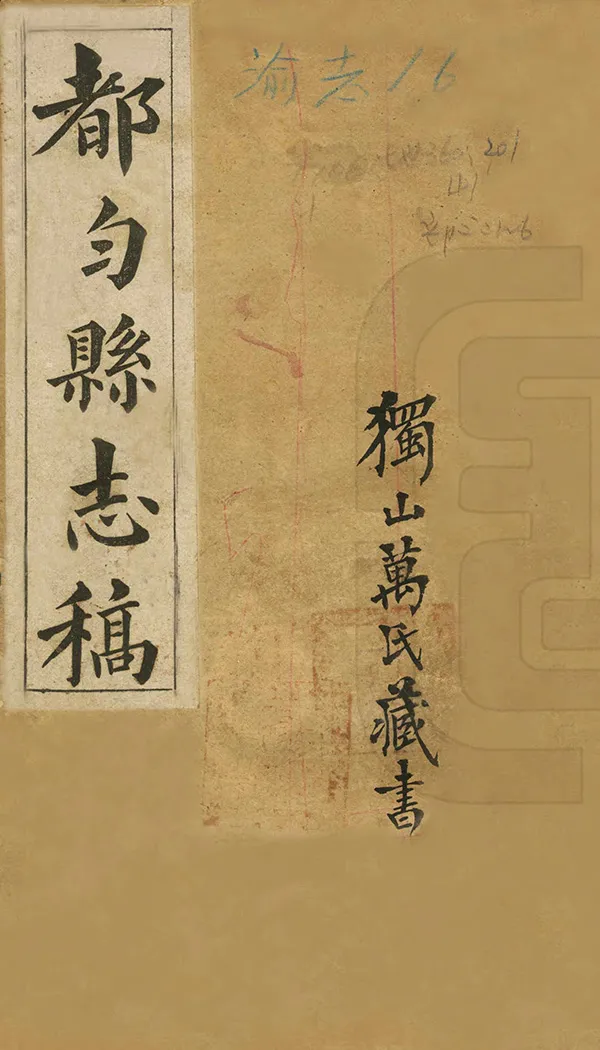 都匀縣志稿
渝志16
201
獨山萬氏藏書